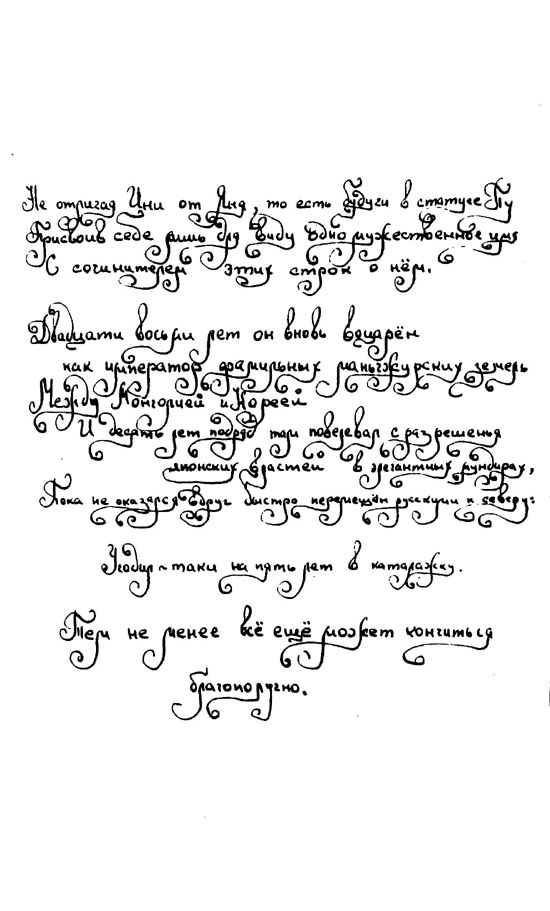 Не отличая Ини от Яня, то есть будучи в статусе Пу
Присвоив себе лишь для виду одно мужественное имя
С сочинителем этих строк о нём.
Двадцати восьми лет он вновь воцарён
как император фамильных маньчжурских земель
Между Монголией и Кореей
И десять лет подряд там повелевал с разрешенья
японских властей в элегантных мундирах,
Пока не оказался вдруг быстро перемещён русскими к северу:
Угодил-таки на пять лет в каталажку.
Тем не менее всё ещё может кончиться
благополучно.